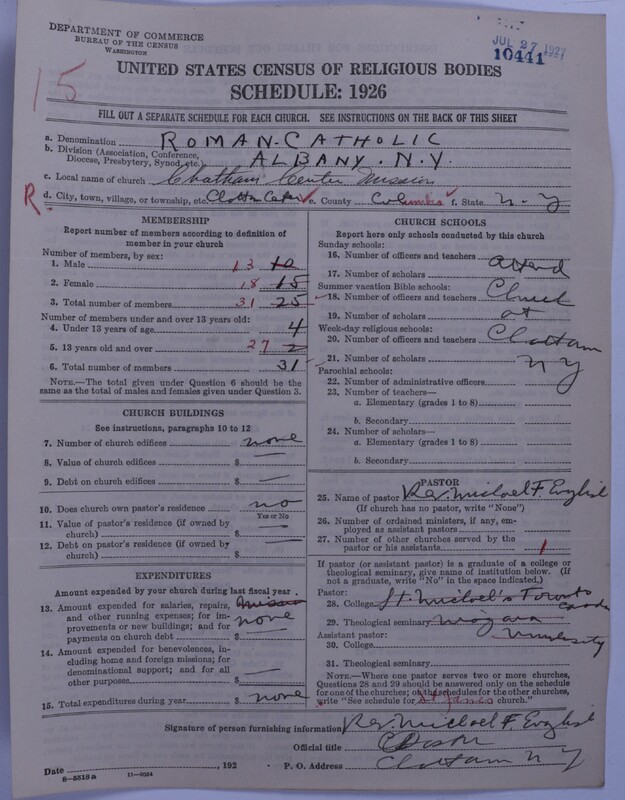 DEPARTMENT OF COMMERCE
BUREAU OF THE CENSUS
WASHINGTON
JUL 27 1927
10441
15
UNITED STATES CENSUS OF RELIGIOUS BODIES
SCHEDULE: 1926
FILL OUT A SEPARATE SCHEDULE FOR EACH CHURCH. SEE INSTRUCTIONS ON THE BACK OF THIS SHEET
a. Denomination ROMAN. CATHOLIC
b. Division (Association, Conference, Diocese, Presbytery, Synod, etc.) ALBANY. N.Y.
c. Local name of church Chatham Center Mission
R. d. City, town, village, or township, etc. e. County Columbia f. State N-Y
MEMBERSHIP
Report number of members according to definition of
member in your church
Number of members, by sex:
1. Male 13 10
2. Female 18 15
3. Total number of members 31 25
Number of members under and over 13 years old:
4. Under 13 years of age 4
5. 13 years old and over 27 2
6. Total number of members 31
NOTE.—The total given under Question 6 should be the
same as the total of males and females given under Question 3.
CHURCH BUILDINGS
See instructions, paragraphs 10 to 12
7. Number of church edifices none
8. Value of church edifices $ —
9. Debt on church edifices $ —
10. Does church own pastor's residence no
Yes or No
11. Value of pastor's residence (if owned by
church) $ —
12. Debt on pastor's residence (if owned by
church) $
EXPENDITURES
Amount expended by your church during last fiscal year.
13. Amount expended for salaries, repairs,
and other running expenses; for im-
provements or new buildings; and for
payments on church debt $ none
14. Amount expended for benevolences, in-
cluding home and foreign missions; for
denominational support; and for all
other purposes $ —
15. Total expenditures during year $ none
CHURCH SCHOOLS
Report here only schools conducted by this church
Sunday schools:
16. Number of officers and teachers attend
17. Number of scholars
Summer vacation Bible schools:
18. Number of officers and teachers Church
19. Number of scholars at
Week-day religious schools:
20. Number of officers and teachers Chatham
21. Number of scholars N Y
Parochial schools:
22. Number of administrative officers
23. Number of teachers—
a. Elementary (grades 1 to 8)
b. Secondary
24. Number of scholars—
a. Elementary (grades 1 to 8)
b. Secondary
PASTOR
25. Name of pastor Rev. Michael F. English
(If church has no pastor, write "None")
26. Number of ordained ministers, if any, em-
ployed as assistant pastors
27. Number of other churches served by the
pastor or his assistants 1
If pastor (or assistant pastor) is a graduate of a college or
theological seminary, give name of institution below. (If
not a graduate, write "No" in the space indicated.)
Pastor:
28. College St. Michael's Toronto Canada
29. Theological seminary Niagara University
Assistant pastor:
30. College
31. Theological seminary
NOTE.—Where one pastor serves two or more churches,
Questions 28 and 29 should be answered only on the schedule
for one of the churches; on the schedules for the other churches,
write "See schedule for St James church."
Signature of person furnishing information Rev. Michael F. English
Official title Pastor
Date , 192 P. O. Address Chatham N Y
8—5518a 11—9034